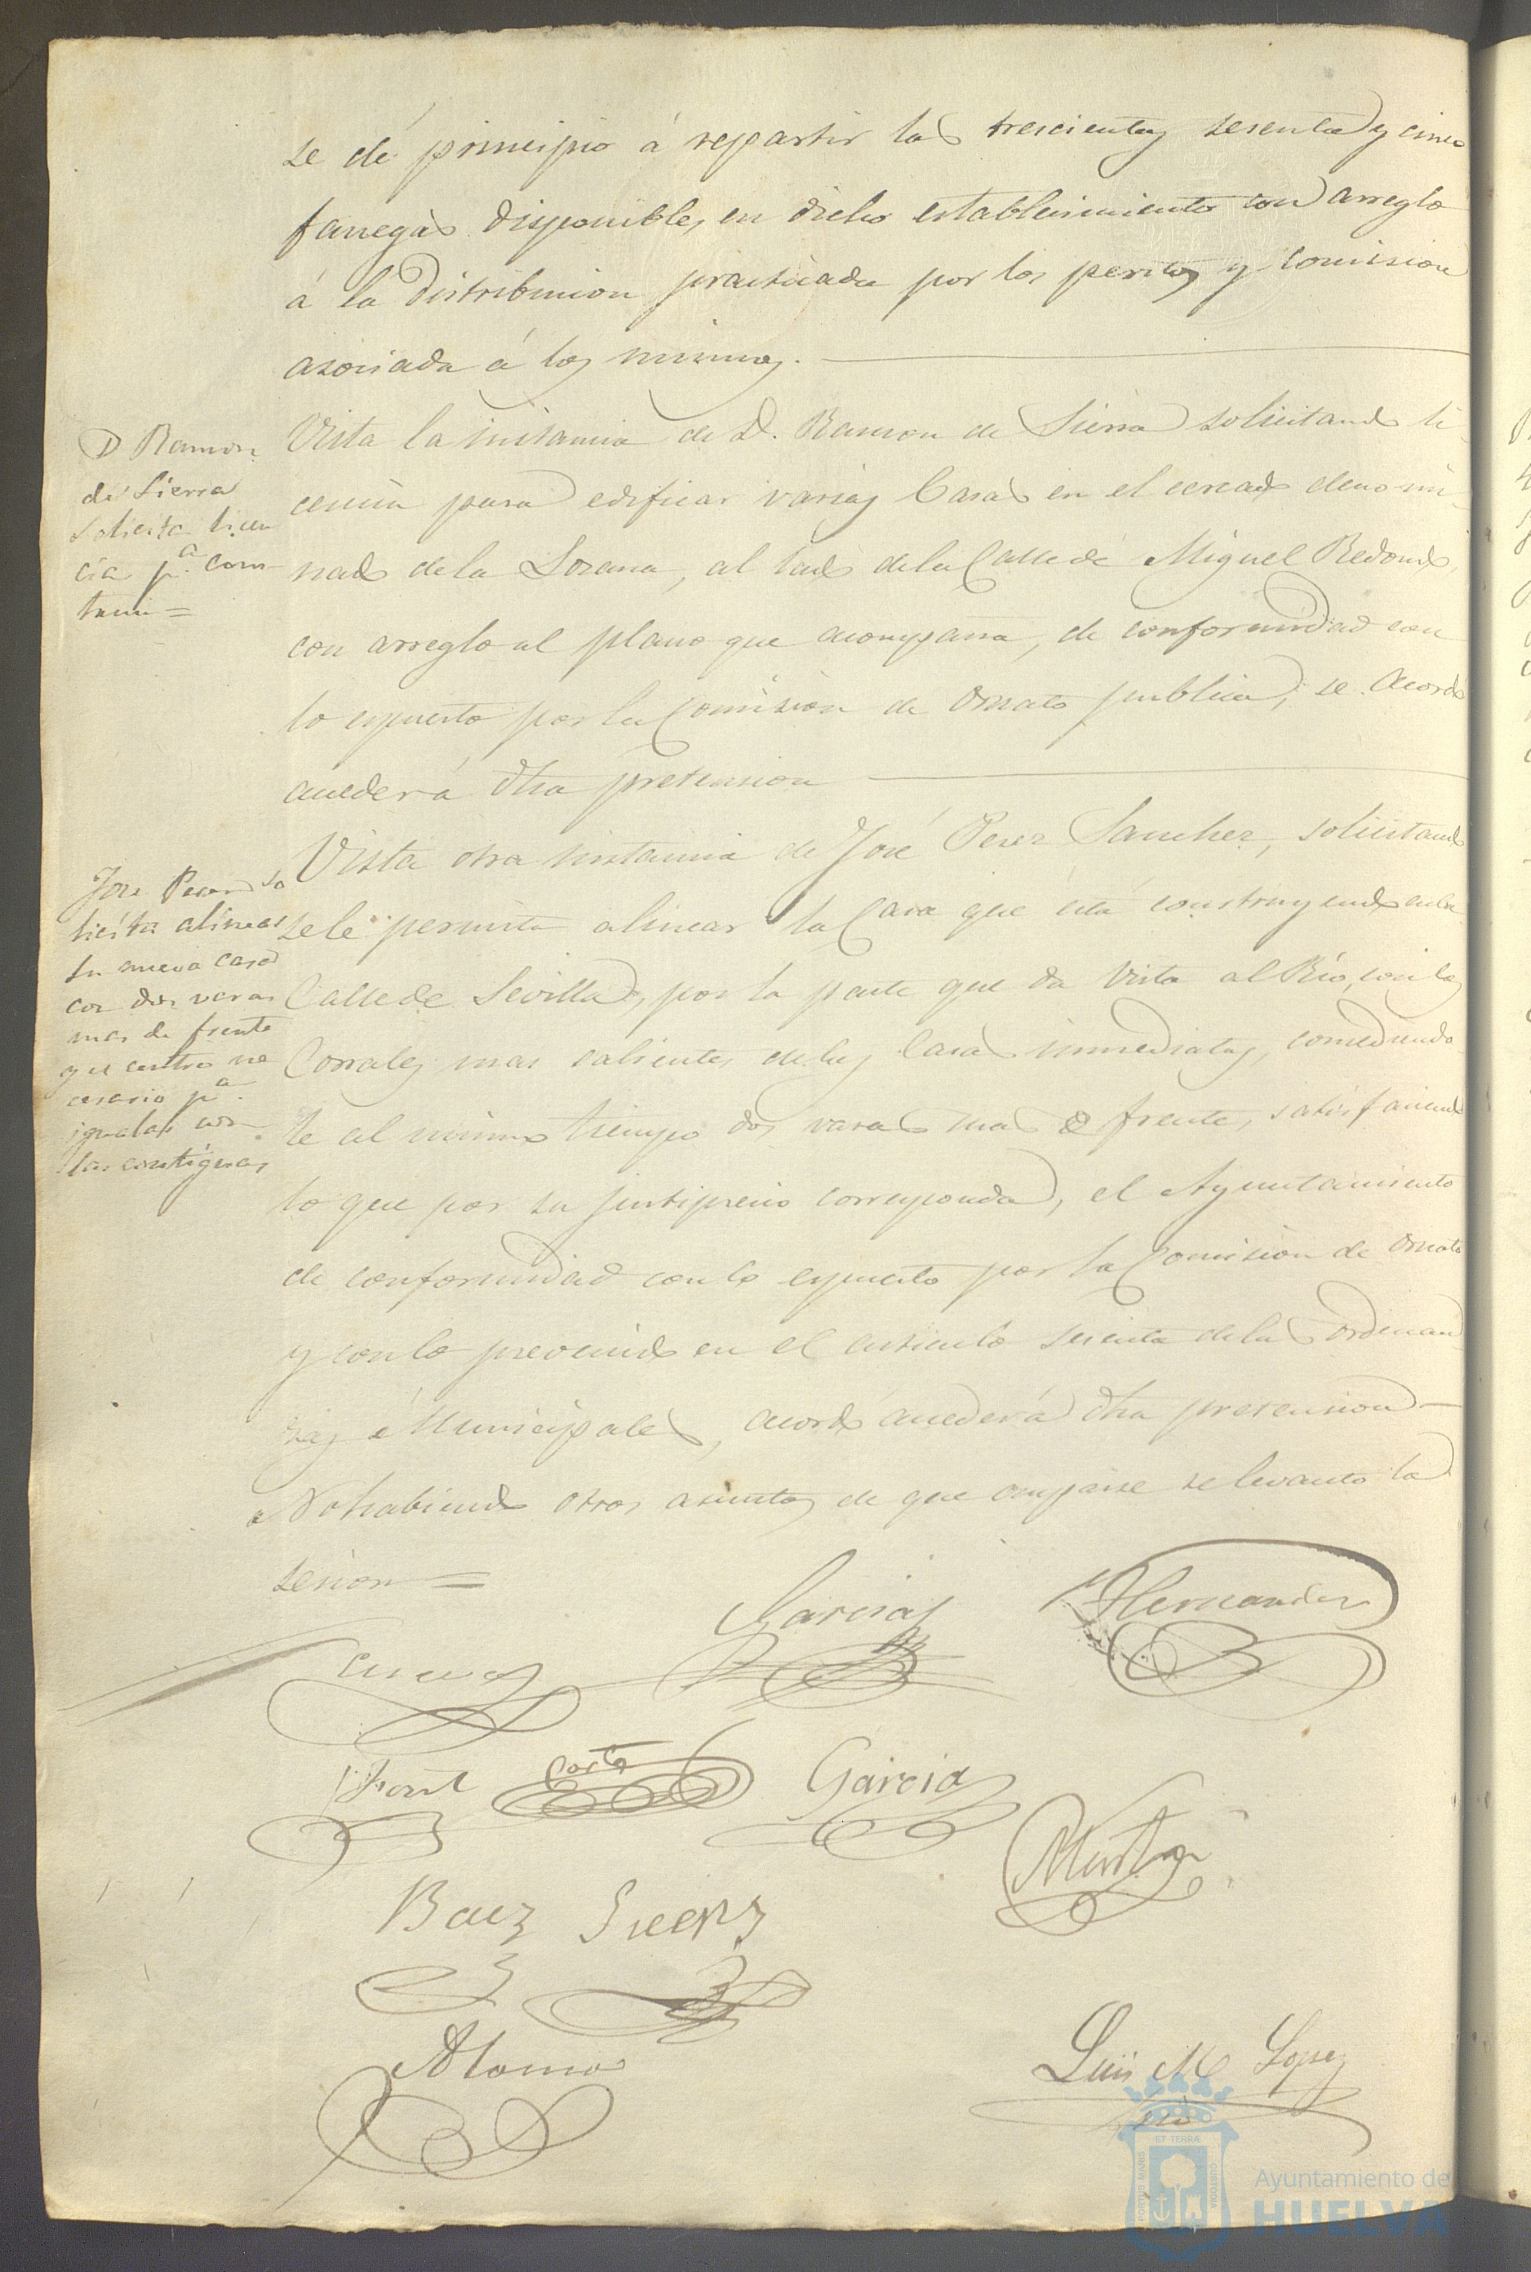 se dé principio á repartir las trescientas sesenta y cinco
fanegas disponibles en dicho establecimiento con arreglo
á la distribucion practicada por los peritos y comision
asociada á los mismos.
D Ramon
de Sierra
solicita licen
cia p.ª cons
truir =
Vista la instancia de D. Ramon de Sierra solicitando li-
cencia para edificar varias Casas en el cercado denomi-
nado de la Lozana, al lado de la Calle de Miguel Redondo,
con arreglo al plano que acompaña, de conformidad con
lo espuesto por la Comision de Ornato publico, se acordó
acceder á dha pretension
Jose Perez so
licita alinear
su nueva casa
con dos varas
mas de frente
que cree ne
cesario p.ª
igualar con
las contiguas
Vista otra instancia de José Perez Sanchez, solicitando
se le permita alinear la Casa que está construyendo en la
Calle de Sevilla, por la parte que da vista al Rio, con los
Corrales mas salientes de las Casas inmediatas, concediendo-
le al mismo tiempo dos varas mas de frente, satisfaciendo
lo que por su justiprecio corresponda, el Ayuntamiento
de conformidad con lo espuesto por la Comision de Ornato
y con lo prevenido en el articulo sesenta de las ordenan
zas Municipales, acordó acceder á dha pretension
No habiendo otros asuntos de que ocuparse se levantó la
sesion =
Garcia Hernandez
Font Corte Garcia
Baez
Alonso
Luis M Lopez
Srio
ET TERRÆ
PORTUS MARIS
CUSTODIA
Ayuntamiento de
HUELVA